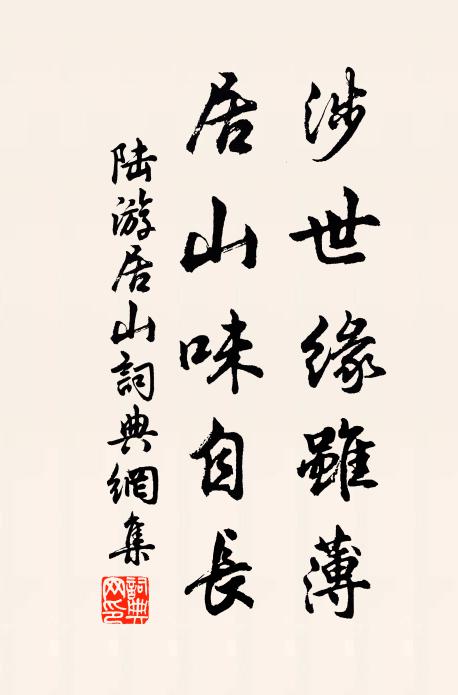 涉世緣雖薄
居山味自長
陸游居山詞典網集
詞典網印